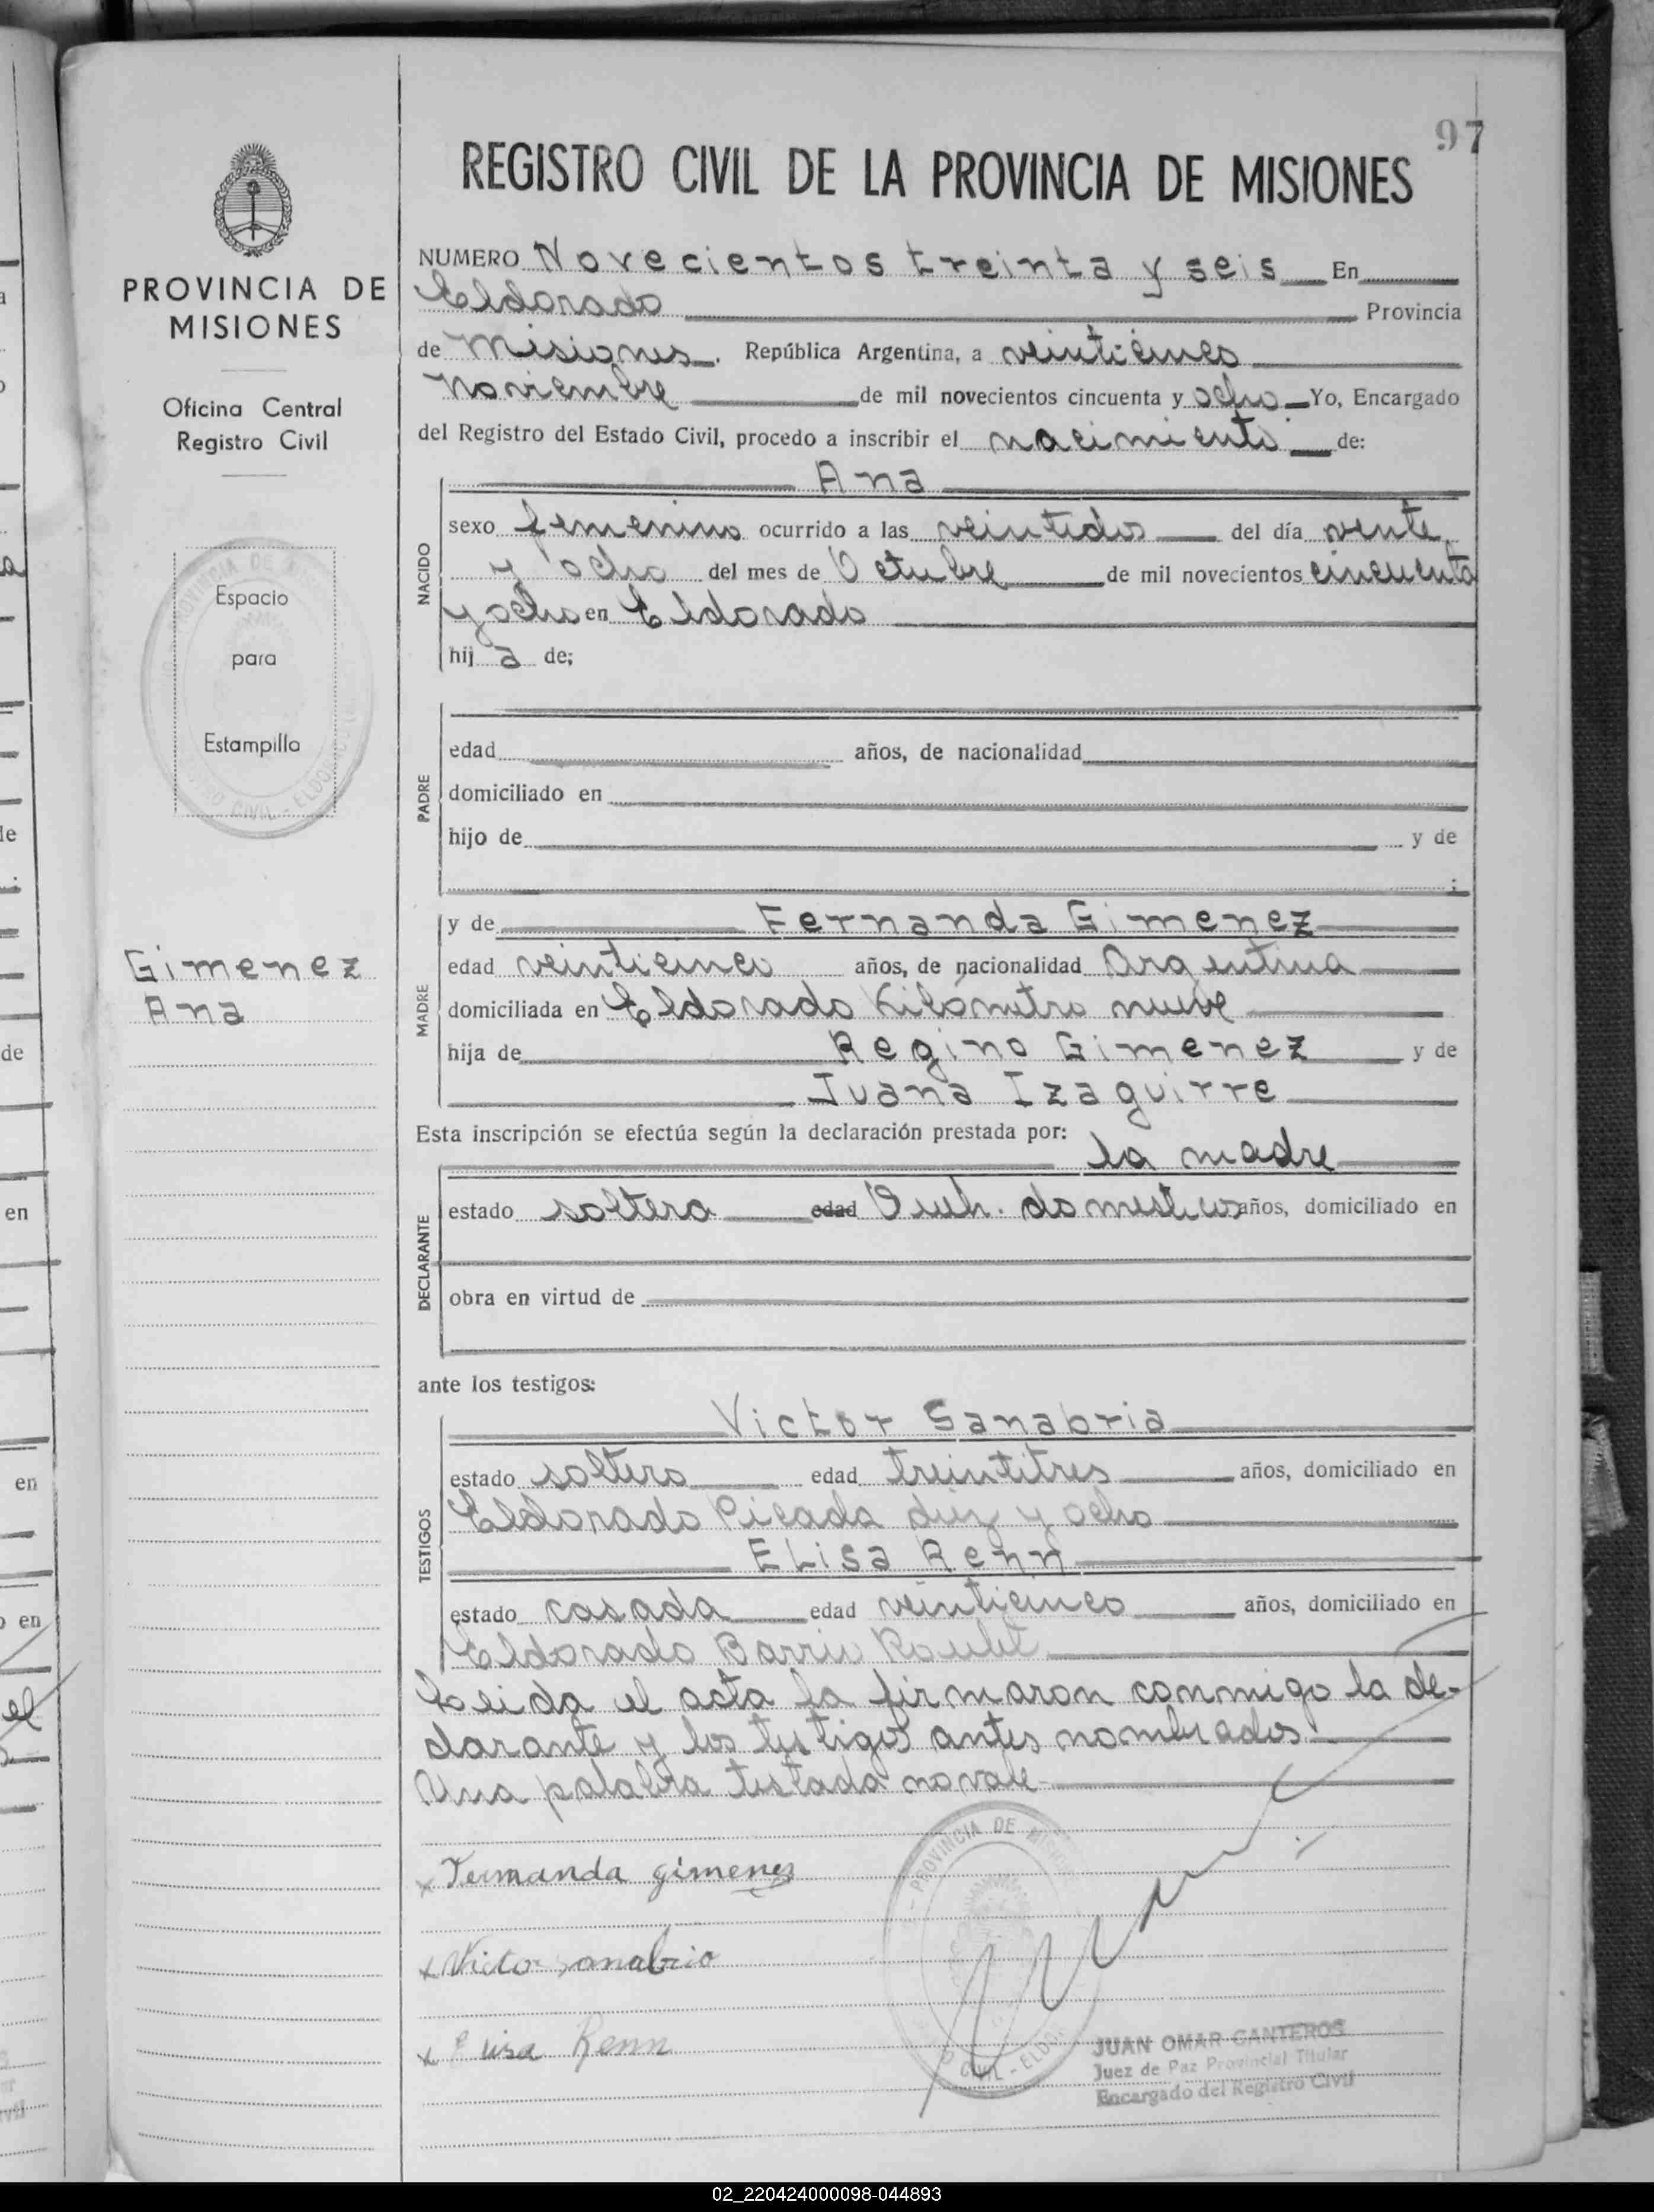 97
REGISTRO CIVIL DE LA PROVINCIA DE MISIONES
PROVINCIA DE
MISIONES
Oficina Central
Registro Civil
Espacio
para
Estampilla
Gimenez
Ana
NUMERO Novecientos treinta y seis En
Eldorado Provincia
de Misiones. República Argentina, a veinticinco
Noviembre de mil novecientos cincuenta y ocho Yo, Encargado
del Registro del Estado Civil, procedo a inscribir el nacimiento de:
Ana
NACIDO
sexo femenino ocurrido a las veintidos del día veinte
y ocho del mes de Octubre de mil novecientos cincuenta
y ocho en Eldorado
hij a de;
PADRE
edad años, de nacionalidad
domiciliado en
hijo de y de
;
MADRE
y de Fernanda Gimenez
edad veinticinco años, de nacionalidad Argentina
domiciliada en Eldorado Kilómetro nueve
hija de Regino Gimenez y de
Juana Izaguirre
Esta inscripción se efectúa según la declaración prestada por:
la madre
DECLARANTE
estado soltera edad domesticos años, domiciliado en
obra en virtud de
ante los testigos:
Victor Sanabria
TESTIGOS
estado soltero edad treintitres años, domiciliado en
Eldorado Picada diez y ocho
ELisa Renn
estado casada edad veinticinco años, domiciliado en
Eldorado Barrio
Leida el acta la firmaron conmigo la de-
clarante y los testigos antes nombrados.
Una palabra testada no vale
x Fernanda gimenez
x Victor sanabria
x Elisa Renn
PROVINCIA DE MISIONES
CIVIL - ELDO
JUAN OMAR CANTEROS
Juez de Paz Provincial Titular
Encargado del Registro Civil
02_220424000098-044893